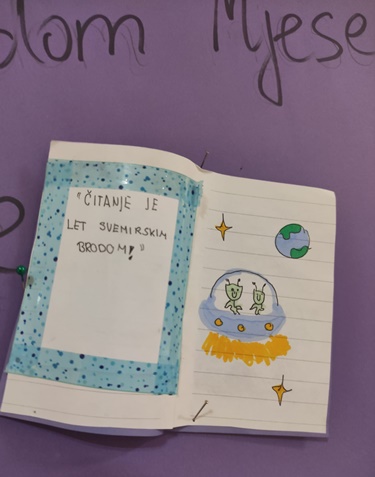 dom Mjese
"ČITANJE JE
LET SVEMIRSKIM
BRODOM!"